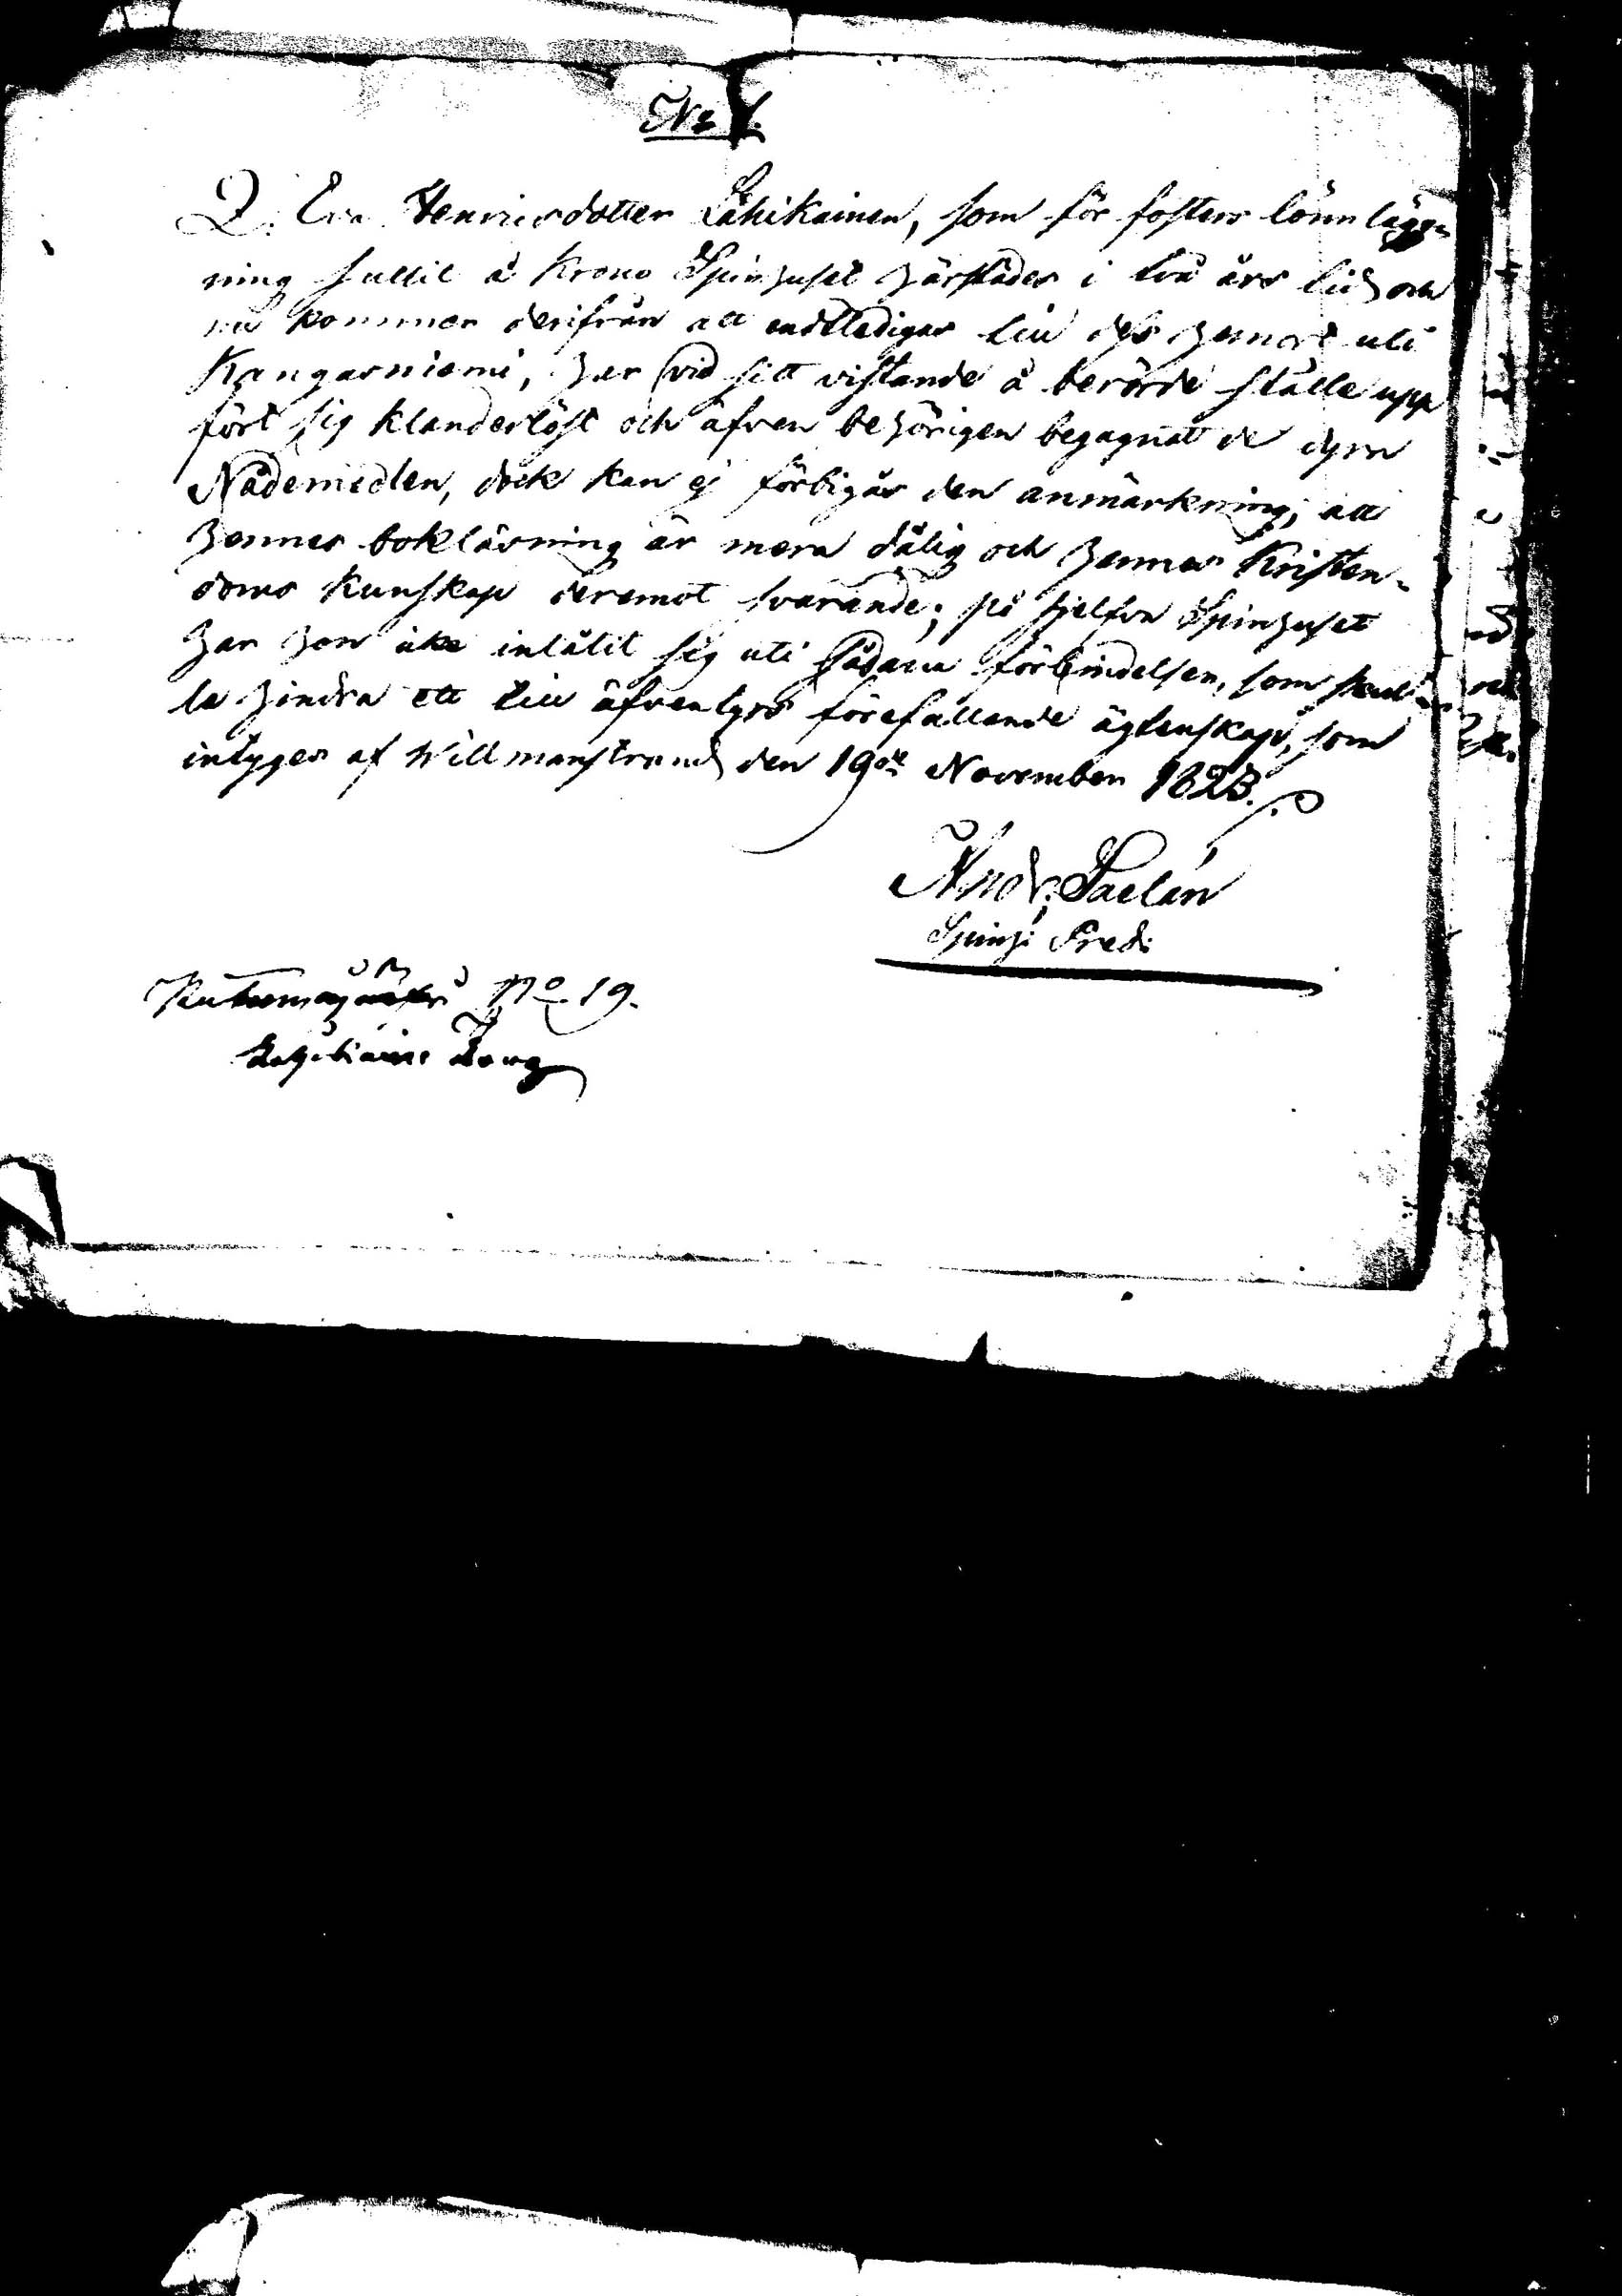 No 1.
Q. Eva Henricsdotter Lähikainen, som för fosters lönnlägg-
ning suttit å Krono Spinhuset härstädes i två års tid och
nu kommer derifrån att endtledigas till dess hemort uti
Kangasniemi, har vid sitt vistande å berörde ställe upp
fört sig klanderlöst och äfven behörigen begagnat de dyra
Nådemedlen, dock kan ej förbigås den anmärkning, att
hennes bokläsning är mera dålig och hennes Kristen-
doms kunskap deremot svarande; på sjelfva Spinhuset
har hon icke inlåtit sig uti sådana förbindelser, som skul-
le hindra ett till äfventyrs förefallande ägtenskap, som
intygas af Willmanstrand den 19de November 1823.
And. Saelan
Spinh: Pred:
No 19.